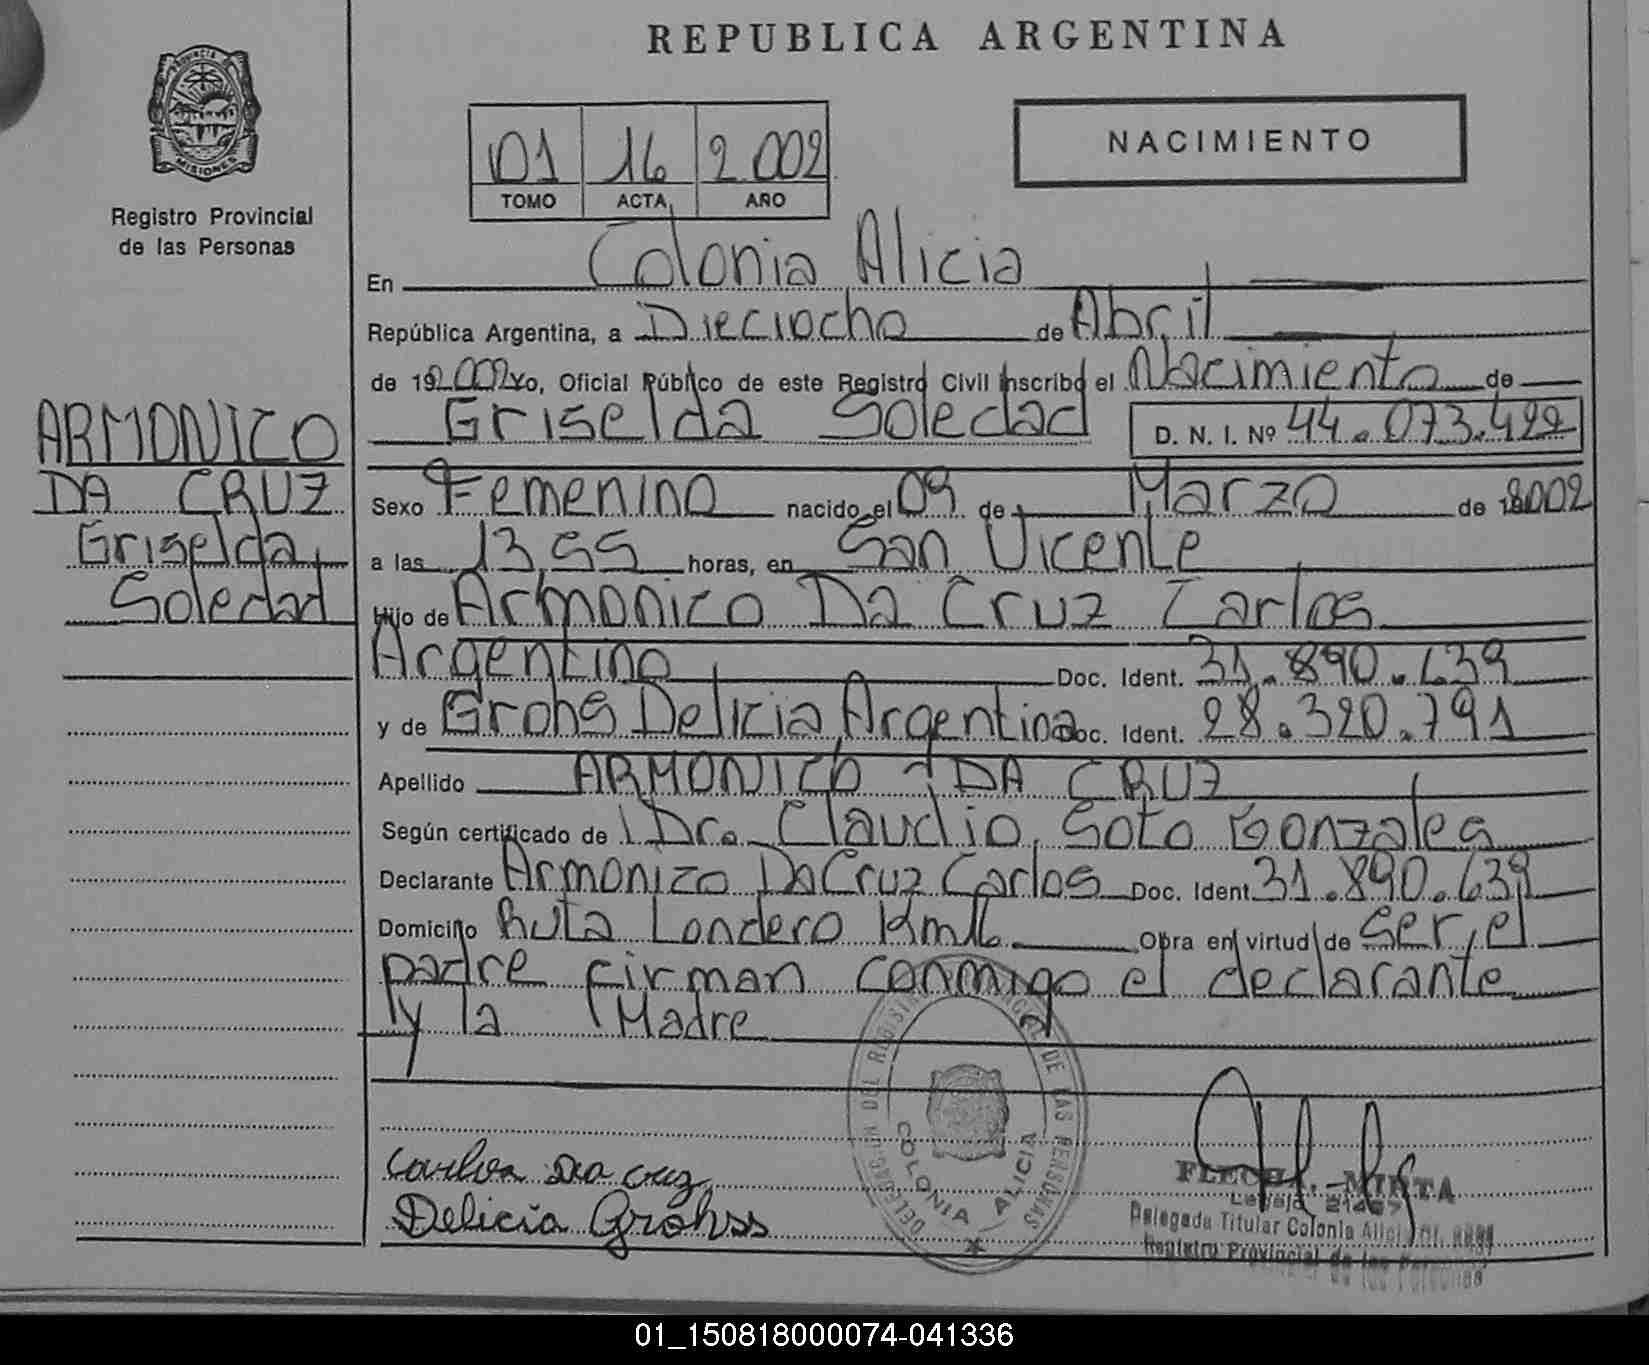 REPUBLICA ARGENTINA
PROVINCIA DE
MISIONES
Registro Provincial
de las Personas
01 16 2.002
TOMO ACTA AÑO
NACIMIENTO
En Colonia Alicia
República Argentina, a Dieciocho de Abril
de 192.002 Yo, Oficial Público de este Registro Civil inscribo el Nacimiento de
Griselda Soledad D. N. I. Nº 44.073.422
ARMONICO
DA CRUZ
Griselda
Soledad
Sexo Femenino nacido el 09 de Marzo de 2002
a las 13,55 horas, en San Vicente
Hijo de Armonico Da Cruz Carlos
Argentino Doc. Ident. 31.890.639
y de Grohs Delicia Argentina Doc. Ident. 28.320.791
Apellido ARMONICO DA CRUZ
Según certificado de Dr. Claudio Soto Gonzales
Declarante Armonizo Da Cruz Carlos Doc. Ident. 31.890.639
Domicilio Ruta Londero Km 16 Obra en virtud de ser el
padre firman conmigo el declarante
y la Madre
Carlos Da Cruz
Delicia Grohss
DELEGAC. DEL REGISTRO PROVINCIAL DE LAS PERSONAS
COLONIA ALICIA
MIRTA
Legajo
Delegada Titular Colonia Alicia
Registro Provincial de las Personas
01_150818000074-041336